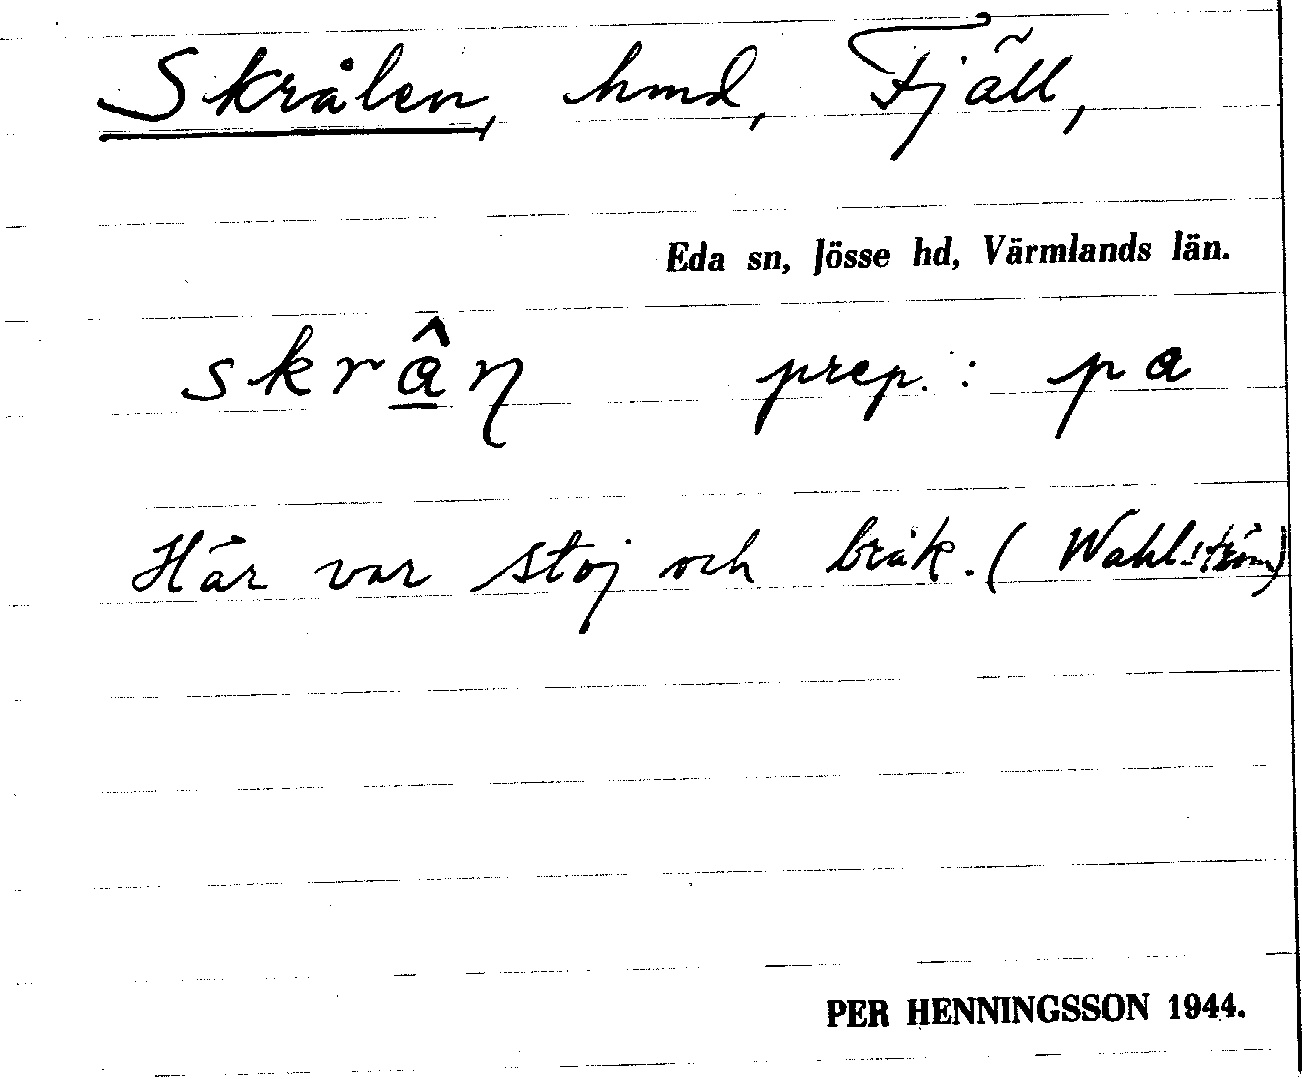 Skrålen, hmd, Fjäll,
Eda sn, Jösse hd, Värmlands län.
skrân prep.: pa
Här var stoj och bråk. (Wahlström)
PER HENNINGSSON 1944.